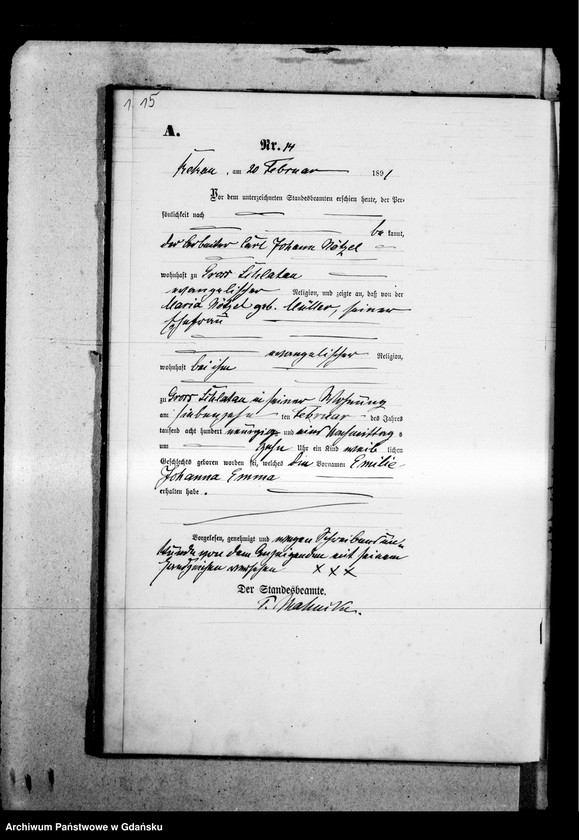 1. 15
A.
Nr. 14
am 20 Februar 1891
Vor dem unterzeichneten Standesbeamten erschien heute, der Per-
sönlichkeit nach
be kannt,
der Arbeiter Carl Johann Nötzel
wohnhaft zu Gross Schlatau
evangelischer Religion, und zeigte an, daß von der
Maria Nötzel geb. Müller, seiner
Ehefrau
evangelischer Religion,
wohnhaft bei ihm
zu Gross Schlatau in seiner Wohnung
am siebenzehn ten Februar des Jahres
tausend acht hundert neunzig und eins Nachmittag s
um zehn Uhr ein Kind weib lichen
Geschlechts geboren worden sei, welches die Vornamen Emilie
Johanna Emma
erhalten habe.
Vorgelesen, genehmigt und wegen Schreibensun-
kunde von dem Anzeigenden mit seinem
Handzeichen versehen XXX
Der Standesbeamte.
Archiwum Państwowe w Gdańsku